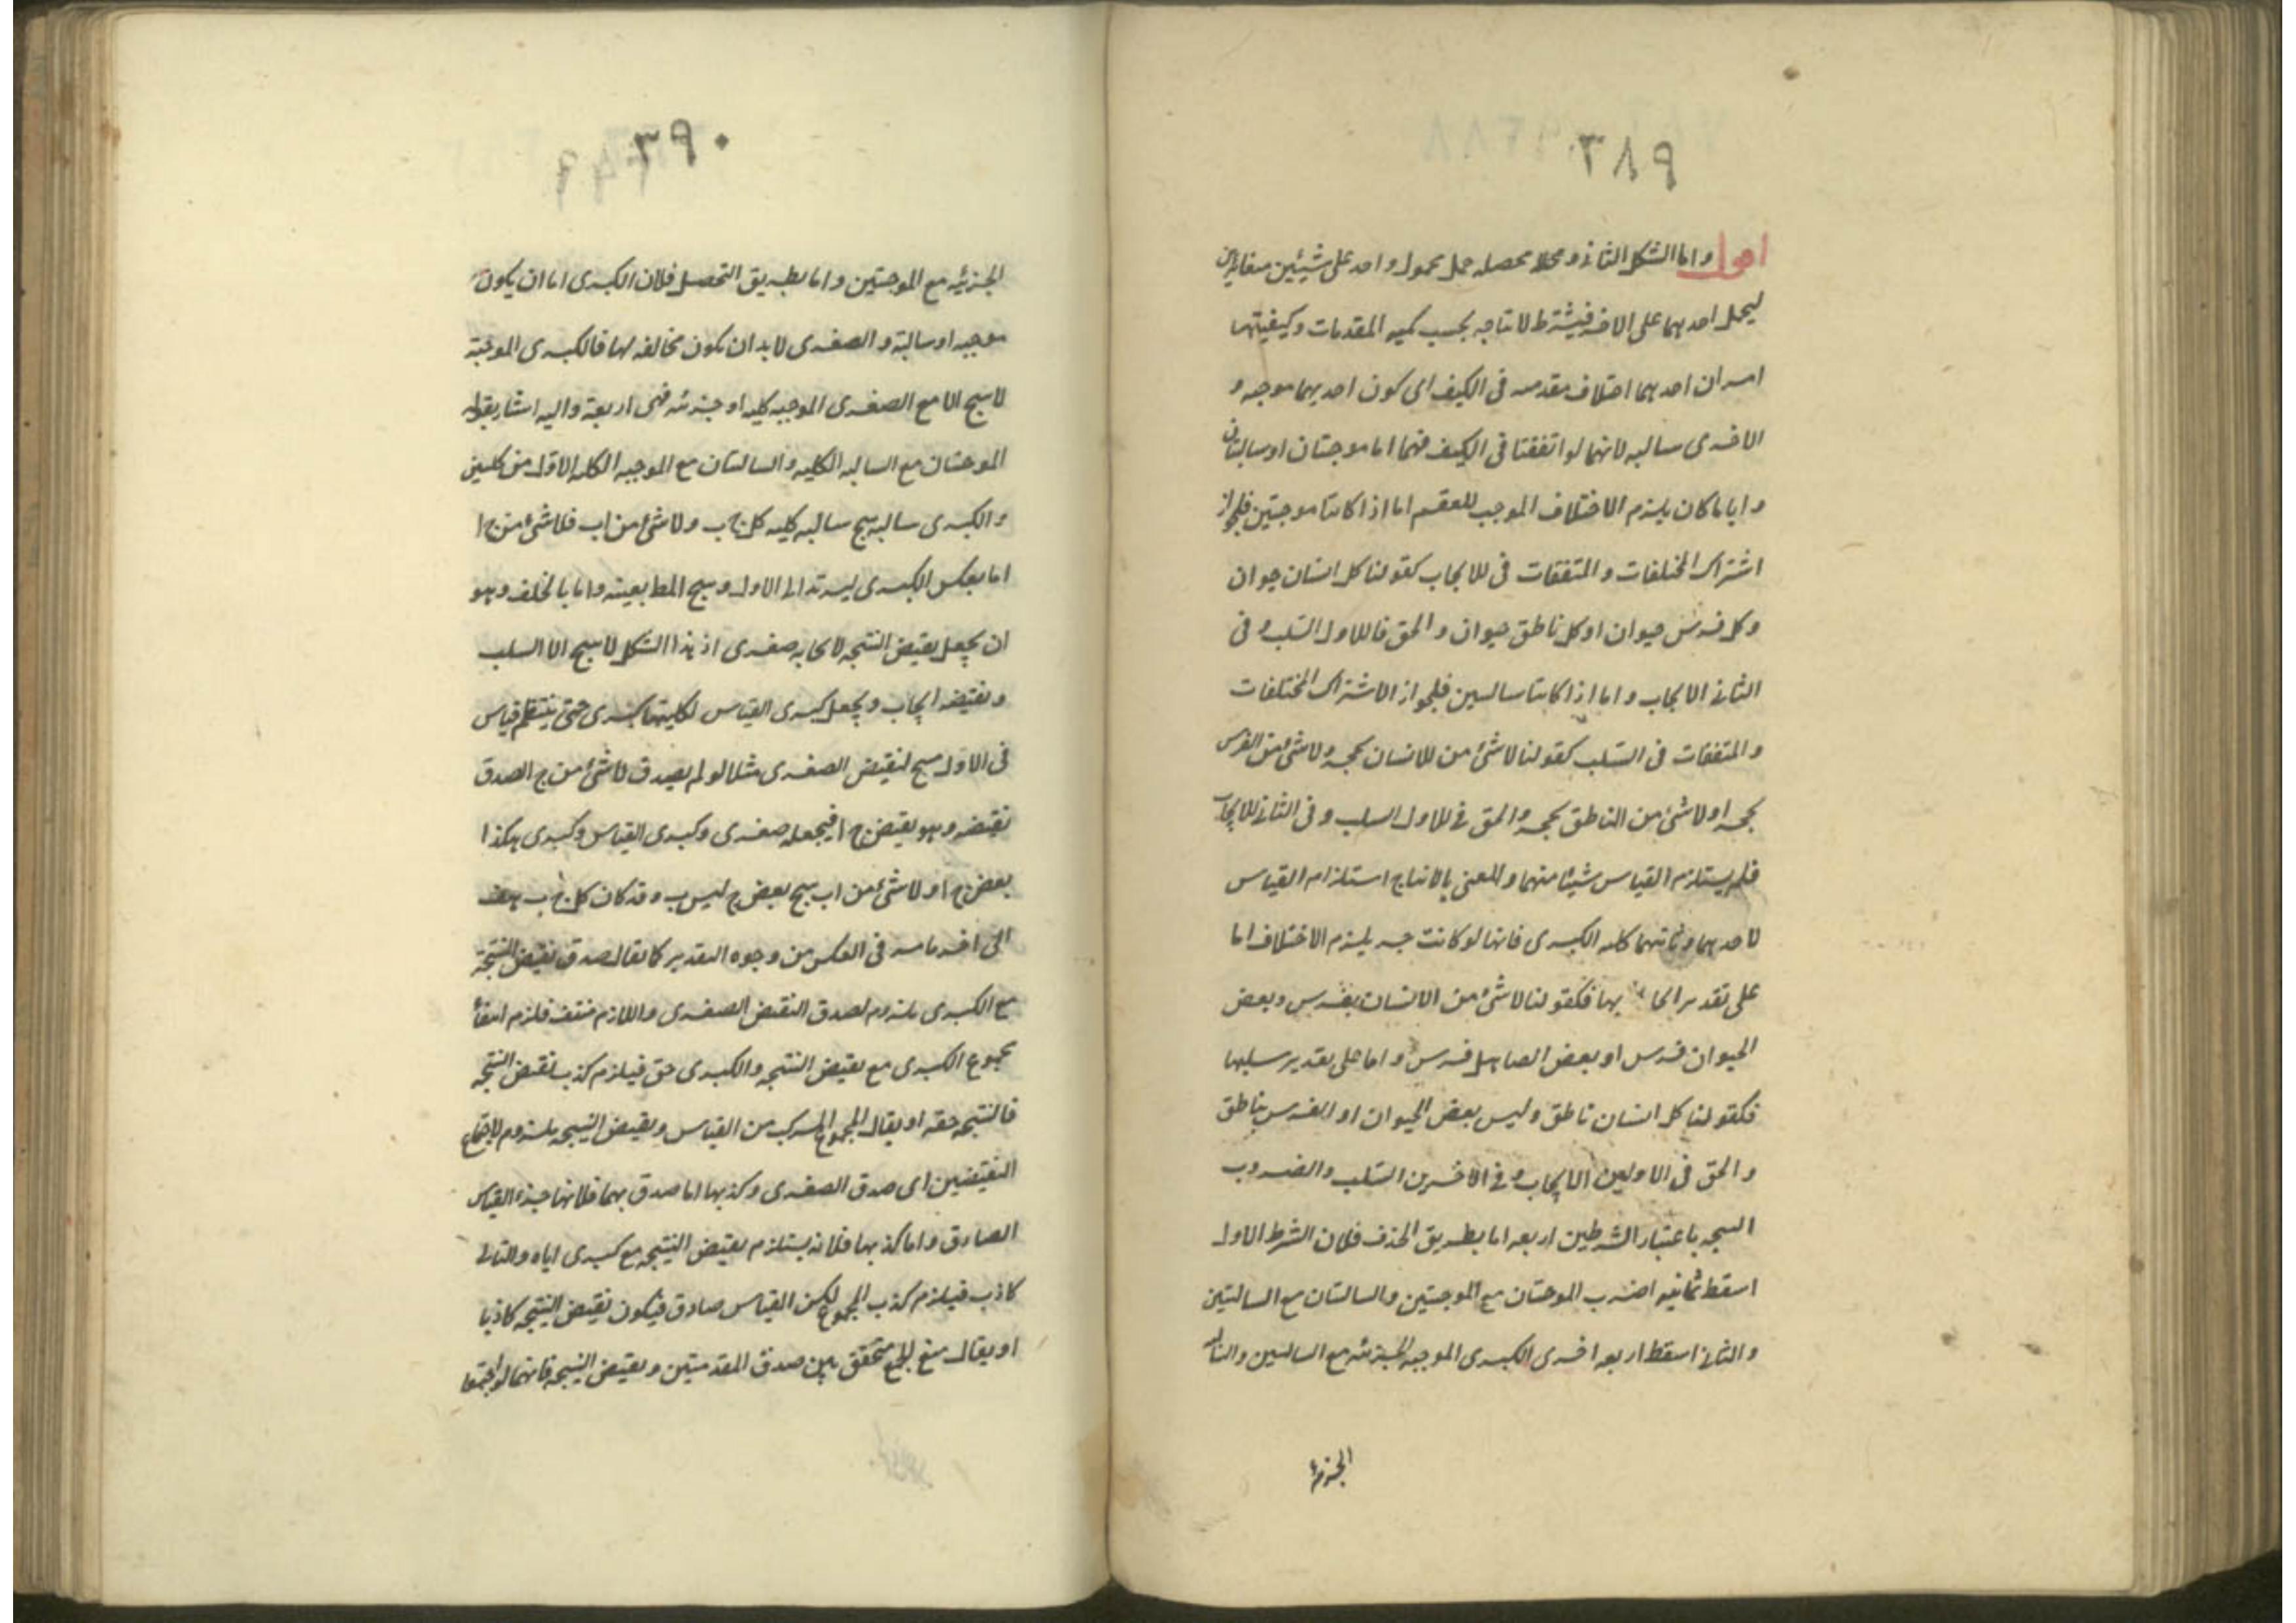 ٣٨٩
واما الشكل الثانى ومحصله حمل محمول واحد على شيئين متغايرين
ليحمل احدهما على الاخر فيشترط لانتاجه بحسب كميه المقدمات وكيفيتهما
امران احدهما اختلاف مقدمتيه فى الكيف اى كون احديهما موجبه و
الاخرى سالبه لانهما لو اتفقتا فى الكيف فهما اما موجبتان او سالبتان
واياما كان يلزم الاختلاف الموجب للعقم اما اذا كانتا موجبتين فلجواز
اشتراك المختلفات والمتفقات فى الايجاب كقولنا كل انسان حيوان
وكل فرس حيوان او كل ناطق حيوان والحق فى الاول السلب وفى
الثانى الايجاب واما اذا كانتا سالبتين فلجواز الاشتراك المختلفات
والمتفقات فى السلب كقولنا لاشئ من الانسان بحجر ولاشئ من الفرس
بحجر او لاشئ من الناطق بحجر والحق فى الاول السلب وفى الثانى الايجاب
فلم يستلزم القياس شيئا منهما والمعنى بالانتاج استلزام القياس
لاحدهما وثانيهما كليه الكبرى فانها لو كانت جزئيه يلزم الاختلاف اما
على تقدير ايجابها فكقولنا لاشئ من الانسان بفرس وبعض
الحيوان فرس او بعض الصاهل فرس واما على تقدير سلبها
فكقولنا كل انسان ناطق وليس بعض الحيوان او الفرس بناطق
والحق فى الاولين الايجاب وفى الاخرين السلب والضروب
المنتجه باعتبار الشرطين اربعه اما بطريق الحذف فلان الشرط الاول
اسقط ثمانيه اضرب الموجبتان مع الموجبتين والسالبتان مع السالبتين
والثانى اسقط اربعه اخرى الكبرى الموجبه الجزئيه مع السالبتين والسالبه
الجزئيه
٣٩٠
الجزئيه مع الموجبتين واما بطريق التحصل فلان الكبرى اما ان يكون
موجبه او سالبة والصغرى لابد ان تكون مخالفه لها فالكبرى الموجبة
لا ينتج الا مع الصغرى الموجبه كليه او جزئيه فهى اربعة واليه اشار بقوله
الموجبتان مع السالبه الكليه والسالبتان مع الموجبه الكليه الاول من كليتين
والكبرى سالبه ينتج سالبه كليه كل ج ب ولاشئ من اب فلاشئ من ج ا
اما بعكس الكبرى ليرتد الى الاول وينتج المط بعينه واما بالخلف وهو
ان يجعل نقيض النتيجه لايجابه صغرى اذ هذا الشكل لا ينتج الا السلب
ونقيضه ايجاب ويجعل كبرى القياس لكليتها كبرى حتى ينتظم قياس
فى الاول ينتج لنقيض الصغرى مثلا لو لم يصدق لاشئ من ج ا لصدق
نقيضه وهو بعض ج ا فيجعله صغرى وكبرى القياس كبرى هكذا
بعض ج ا ولاشئ من اب ينتج بعض ج ليس ب وقد كان كل ج ب هف
الى اخر ما مر فى العكس من وجوه التقدير كما يقال صدق نقيض النتيجة
مع الكبرى ملزوم لصدق النقيض الصغرى واللازم منتف فلزم انتفأ
مجموع الكبرى مع نقيض النتيجه والكبرى حق فيلزم كذب نقيض النتيجه
فالنتيجه حقه او يقال المجموع المركب من القياس ونقيض النتيجه ملزوم لاجتماع
النقيضين اى صدق الصغرى وكذبها اما صدق بهما فلانها جزء القياس
الصادق واما كذبها فلانه يستلزم نقيض النتيجه مع كبرى اياه والتالى
كاذب فيلزم كذب المجموع لكن القياس صادق فيكون نقيض النتيجه كاذبا
او يقال منع الجمع متحقق بين صدق المقدمتين ونقيض النتيجه فانهما لو اجتمعا